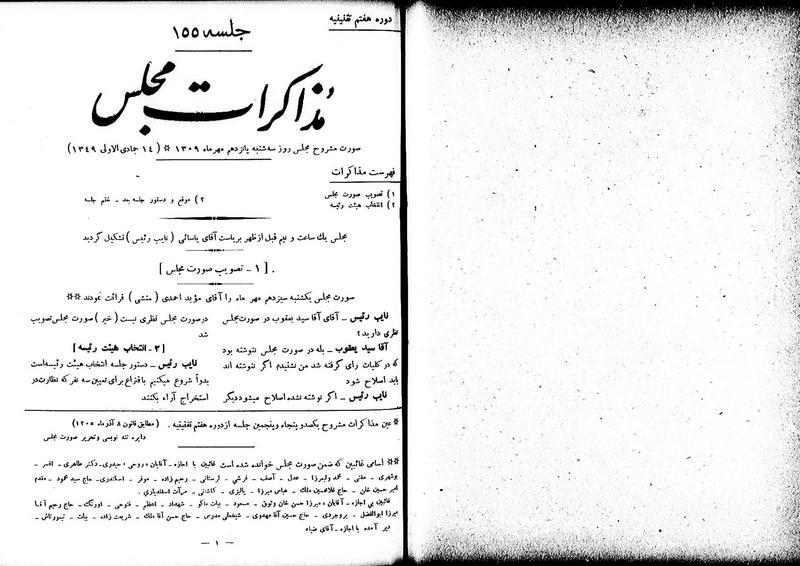 دوره هفتم تقنینیه
جلسه ۱۵۵
مذاکرات مجلس
صورت مشروح مجلس روز سه شنبه پانزدهم مهر ماه ۱۳۰۹ * (۱۴ جمادی الاولی ۱۳۴۹)
فهرست مذاکرات
۱) تصویب صورت مجلس
۲) انتخاب هیئت رئیسه
۳) موقع و دستور جلسه بعد - ختم جلسه
مجلس یك ساعت و نیم قبل از ظهر بریاست آقای یاسائی (نایب رئیس) تشکیل گردید
[۱ - تصویب صورت مجلس]
صورت مجلس یکشنبه سیزدهم مهر ماه را آقای مؤید احمدی (منشی) قرائت نمودند **
نایب رئیس - آقای آقا سید یعقوب در صورت مجلس
نظری دارید؟
آقا سید یعقوب - بله در صورت مجلس ننوشته بود
که در کلیات رأی گرفته شد من نشنیدم اگر ننوشته اند
باید اصلاح شود
نایب رئیس - اگر نوشته نشده اصلاح میشود دیگر
در صورت مجلس نظری نیست (خیر) صورت مجلس تصویب
شد
[۲ - انتخاب هیئت رئیسه]
نایب رئیس - دستور جلسه انتخاب هیئت رئیسه است
بدواً شروع میکنیم باقتراع برای تعیین سه نفر که نظارت در
استخراج آراء بکنند
* عین مذاکرات مشروح یکصد و پنجاه و پنجمین جلسه از دوره هفتم تقنینیه . (مطابق قانون ۸ آذر ماه ۱۳۰۵)
دایره تند نویسی و تحریر صورت مجلس
** اسامی غائبین که ضمن صورت مجلس خوانده شده است غائبین با اجازه - آقایان : روحی - حیدری - دکتر طاهری - افسر -
بوشهری - مفتی - محمد ولی میرزا - عدل - آصف - قرشی - لرستانی - رحیم زاده - موقر - اسکندری - حاج سید محمود - مقدم
امیر حسین خان - حاج غلامحسین ملك - عباس میرزا - پالیزی - کاشانی - مرآت اسفندیاری .
غائبین بی اجازه - آقایان : میرزا حسن خان وثوق - مسعود - بیات ماکو - شهداد - اعظم - فتوحی - اورنگ - حاج رحیم آقا
میرزا ابوالفضل - بروجردی - حاج حسین آقا مهدوی - شیخعلی مدرس - حاج حسن آقا ملك - شریعت زاده - بیات - تیمورتاش -
دیر آمده با اجازه - آقای ضیاء
- ۱ -